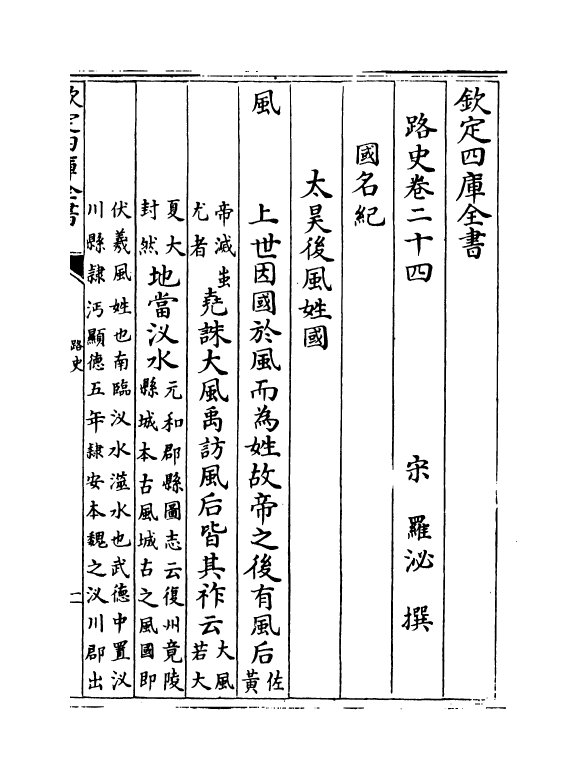 欽定四庫全書
路史卷二十四 宋 羅泌 撰
國名紀
太昊後風姓國
風 上世因國於風而為姓故帝之後有風后佐黃
帝滅蚩尤者堯誅大風禹訪風后皆其祚云大風若大
夏大封然地當汊水元和郡縣圖志云復州竟陵縣城本古風城古之風國即
伏羲風姓也南臨汊水澨水也武德中置汊
川縣隸沔顯德五年隸安本魏之汊川郡出
欽定四庫全書 路史